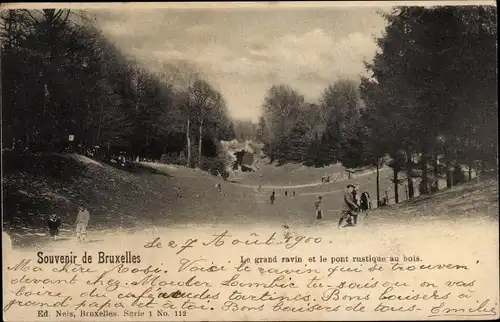 le 27 Août 1900
Souvenir de Bruxelles.
Le grand ravin et le pont rustique au bois.
Ma chère Rosa. Voici le ravin qui se trouvem
devant chez Moeder Lambic tu sais ou on vend
du café des tartines. Bons baisers à
grand papa et à toi. Bons baisers de tous. Emilie
Ed. Nels, Bruxelles. Série 1 No. 112